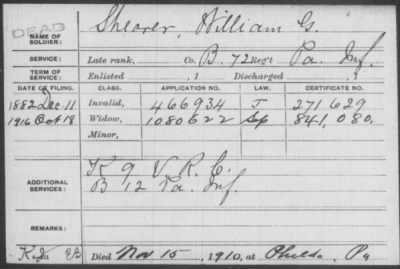 DEAD
NAME OF SOLDIER: Shearer, William G.
SERVICE: Late rank, Co. B, 72 Reg't Pa. Inf.
TERM OF SERVICE: Enlisted , 1 Discharged , 1
DATE OF FILING. CLASS. APPLICATION NO. LAW. CERTIFICATE NO.
1882 Dec. 11 Invalid, 466934 J 271629
1916 Oct 18 Widow, 1080622 841,080.
Minor,
ADDITIONAL SERVICES: K 9 V. R. C.
B 12 Pa. Inf.
REMARKS:
Died Nov 15, 1910, at Philda, Pa